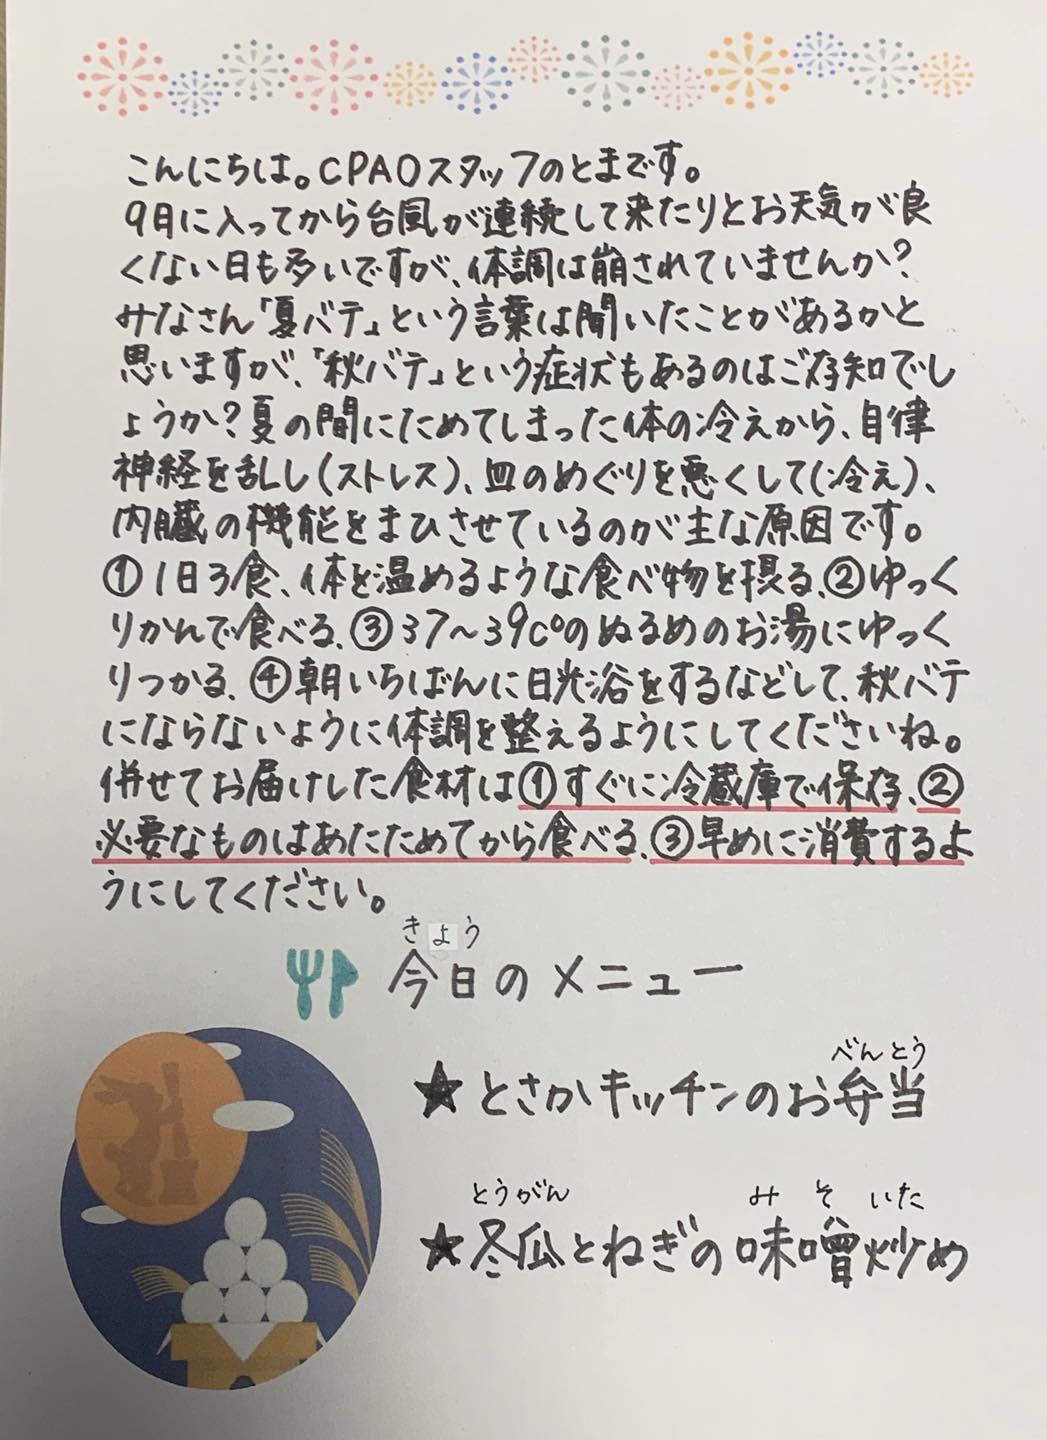 こんにちは。CPAOスタッフのとまです。
9月に入ってから台風が連続して来たりとお天気が良
くない日も多いですが、体調は崩されていませんか?
みなさん「夏バテ」という言葉は聞いたことがあるかと
思いますが、「秋バテ」という症状もあるのはご存知でし
ょうか?夏の間にためてしまった体の冷えから、自律
神経を乱し(ストレス)、皿のめぐりを悪くして(冷え)、
内臓の機能をまひさせているのが主な原因です。
①1日3食、体を温めるような食べ物を摂る、②ゆっく
りかんで食べる、③37〜39c°のぬるめのお湯にゆっく
りつかる、④朝いちばんに日光浴をするなどして、秋バテ
にならないように体調を整えるようにしてくださいね。
併せてお届けした食材は①すぐに冷蔵庫で保存、②
必要なものはあたためてから食べる、③早めに消費するよ
うにしてください。
きょう
今日のメニュー
べんとう
★とさかキッチンのお弁当
とうがん みそ いた
★冬瓜とねぎの味噌炒め